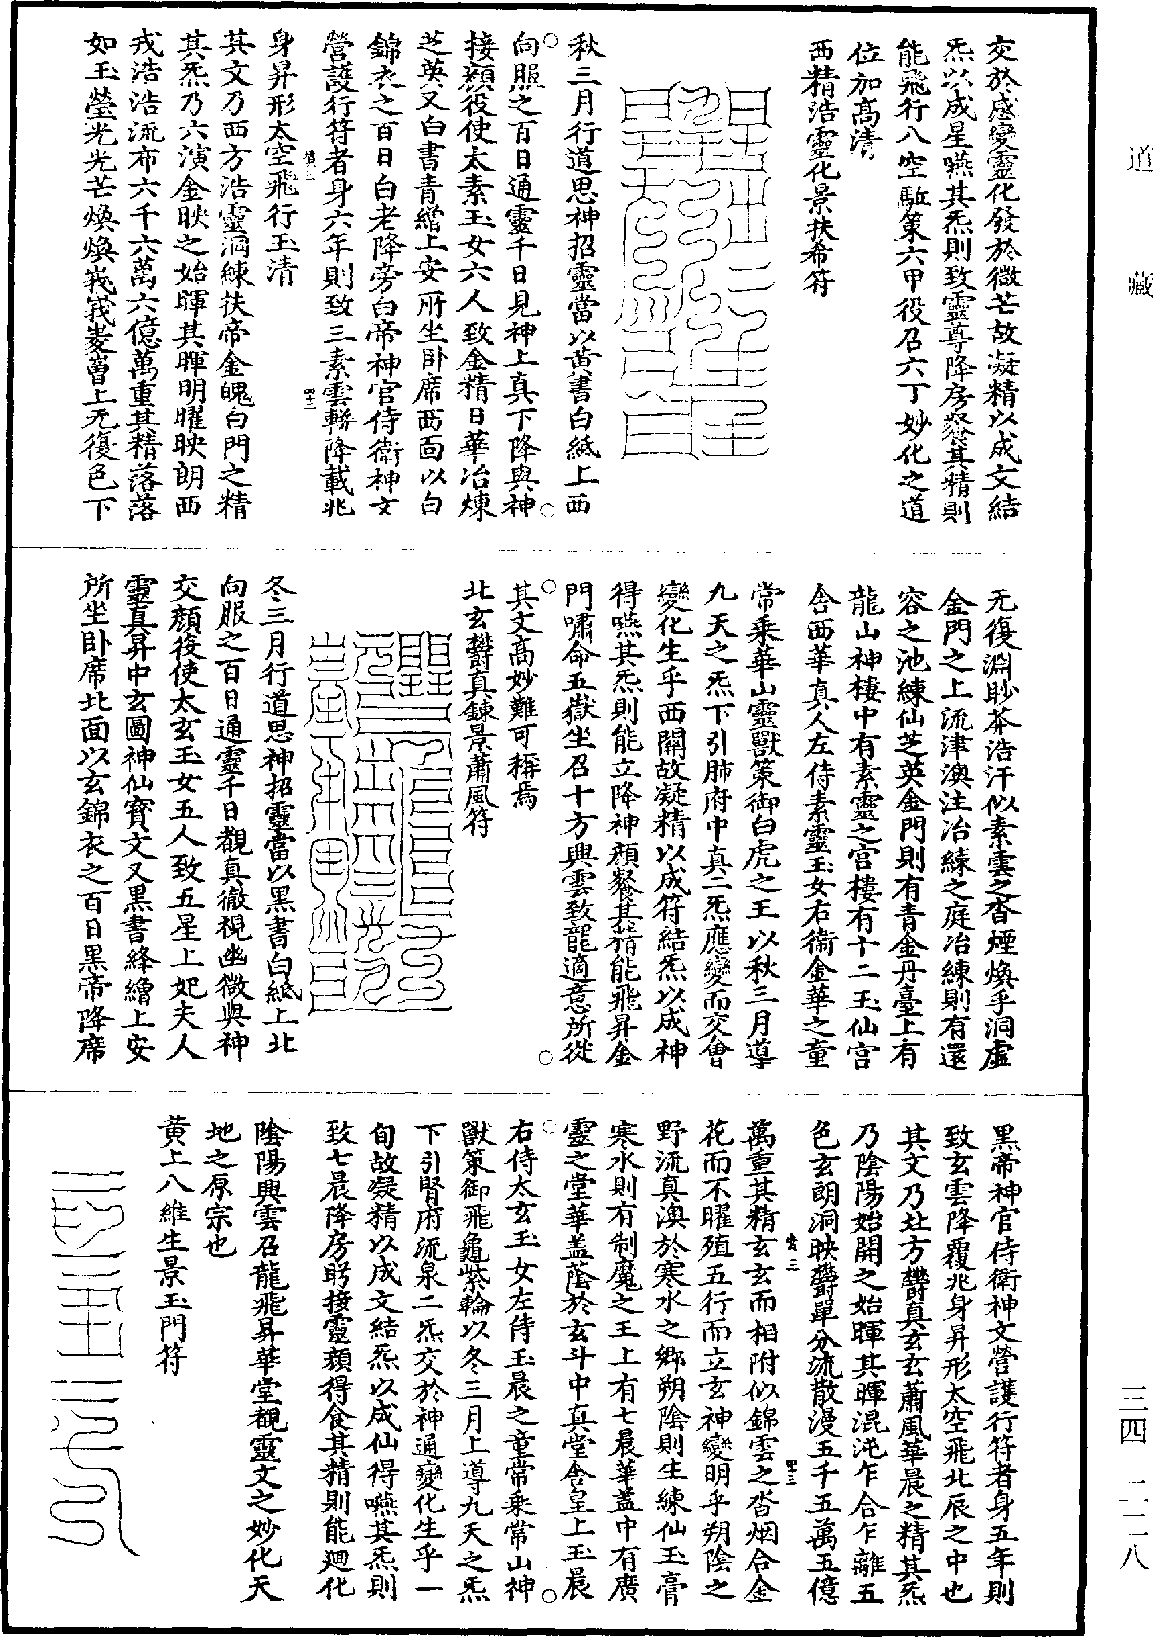 道藏
三四 二二八
交於感變靈化發於微芒故凝精以成文結
炁以成星嚥其炁則致靈尊降房餐其精則
能飛行八空駈策六甲役召六丁妙化之道
位加高清
西精浩靈化景扶希符
秋三月行道思神招靈當以黃書白紙上西
向服之百日通靈千日見神上真下降與神
接顔役使太素玉女六人致金精日華冶煉
芝英又白書青繒上安所坐卧席西面以白
錦衣之百日白老降旁白帝神官侍衛神文
營護行符者身六年則致三素雲軿降載兆
身昇形太空飛行玉清
其文乃西方浩靈洞練扶帝金魄白門之精
其炁乃六演金映之始暉其暉明曜映朗西
戎浩浩流布六千六萬六億萬重其精落落
如玉瑩光光芒煥煥峩峩菱曾上无復色下
无復淵眇莽浩汗似素雲之沓煙煥乎洞虛
金門之上流津澳注冶練之庭冶練則有還
容之池練仙芝英金門則有青金丹臺上有
龍山神棲中有素靈之宮樓有十二玉仙宮
舍西華真人左侍素靈玉女右衛金華之童
常乘華山靈獸策御白虎之王以秋三月導
九天之炁下引肺府中真二炁應變而交會
變化生乎西關故凝精以成符結炁以成神
得嚥其炁則能立降神顔餐其精能飛昇金
門嘯命五嶽坐召十方興雲致龍適意所從
其文高妙難可稱焉
北玄鬱真錬景蕭風符
冬三月行道思神招靈當以黑書白紙上北
向服之百日通靈千日觀真徹視幽微與神
交顔後使太玄玉女五人致五星上妃夫人
靈真昇中玄圖神仙寳文又黑書絳繒上安
所坐卧席北面以玄錦衣之百日黑帝降席
黑帝神官侍衛神文營護行符者身五年則
致玄雲降覆兆身昇形太空飛北辰之中也
其文乃北方鬱真玄玄蕭風華晨之精其炁
乃陰陽始開之始暉其暉混沌乍合乍離五
色玄朗洞映鬱單分流散漫五千五萬五億
萬重其精玄玄而相附似錦雲之沓烟合金
花而不曜殖五行而立玄神變明乎朔陰之
野流真澳於寒水之鄉朔陰則生練仙玉膏
寒水則有制魔之王上有七晨華盖中有廣
靈之堂華盖蔭於玄斗中真堂舍皇上玉晨
右侍太玄玉女左侍玉晨之童常乘常山神
獸策御飛龜紫輪以冬三月上導九天之炁
下引腎府流泉二炁交於神通變化生乎一
旬故凝精以成文結炁以成仙得嚥其炁則
致七晨降房眄接靈顔得食其精則能迴化
陰陽興雲召龍飛昇華堂觀靈文之妙化天
地之原宗也
黄上八維生景玉門符